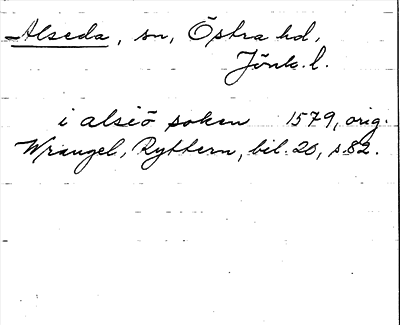 Alseda, sn, Östra hd,
Jönk. l.
i alsiö soken 1579, orig.
Wrangel, Ryttern, bil. 20, s. 82.